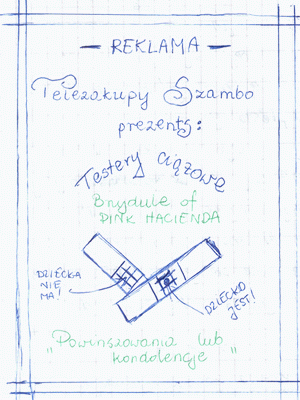 — REKLAMA —
Telezakupy Szambo
prezents:
Testery ciążowe
Brydule of
PINK HACIENDA
DZIECKA
NIE
MA!
DZIECKO
JEST!
"Powinszowania lub
kondolencje"